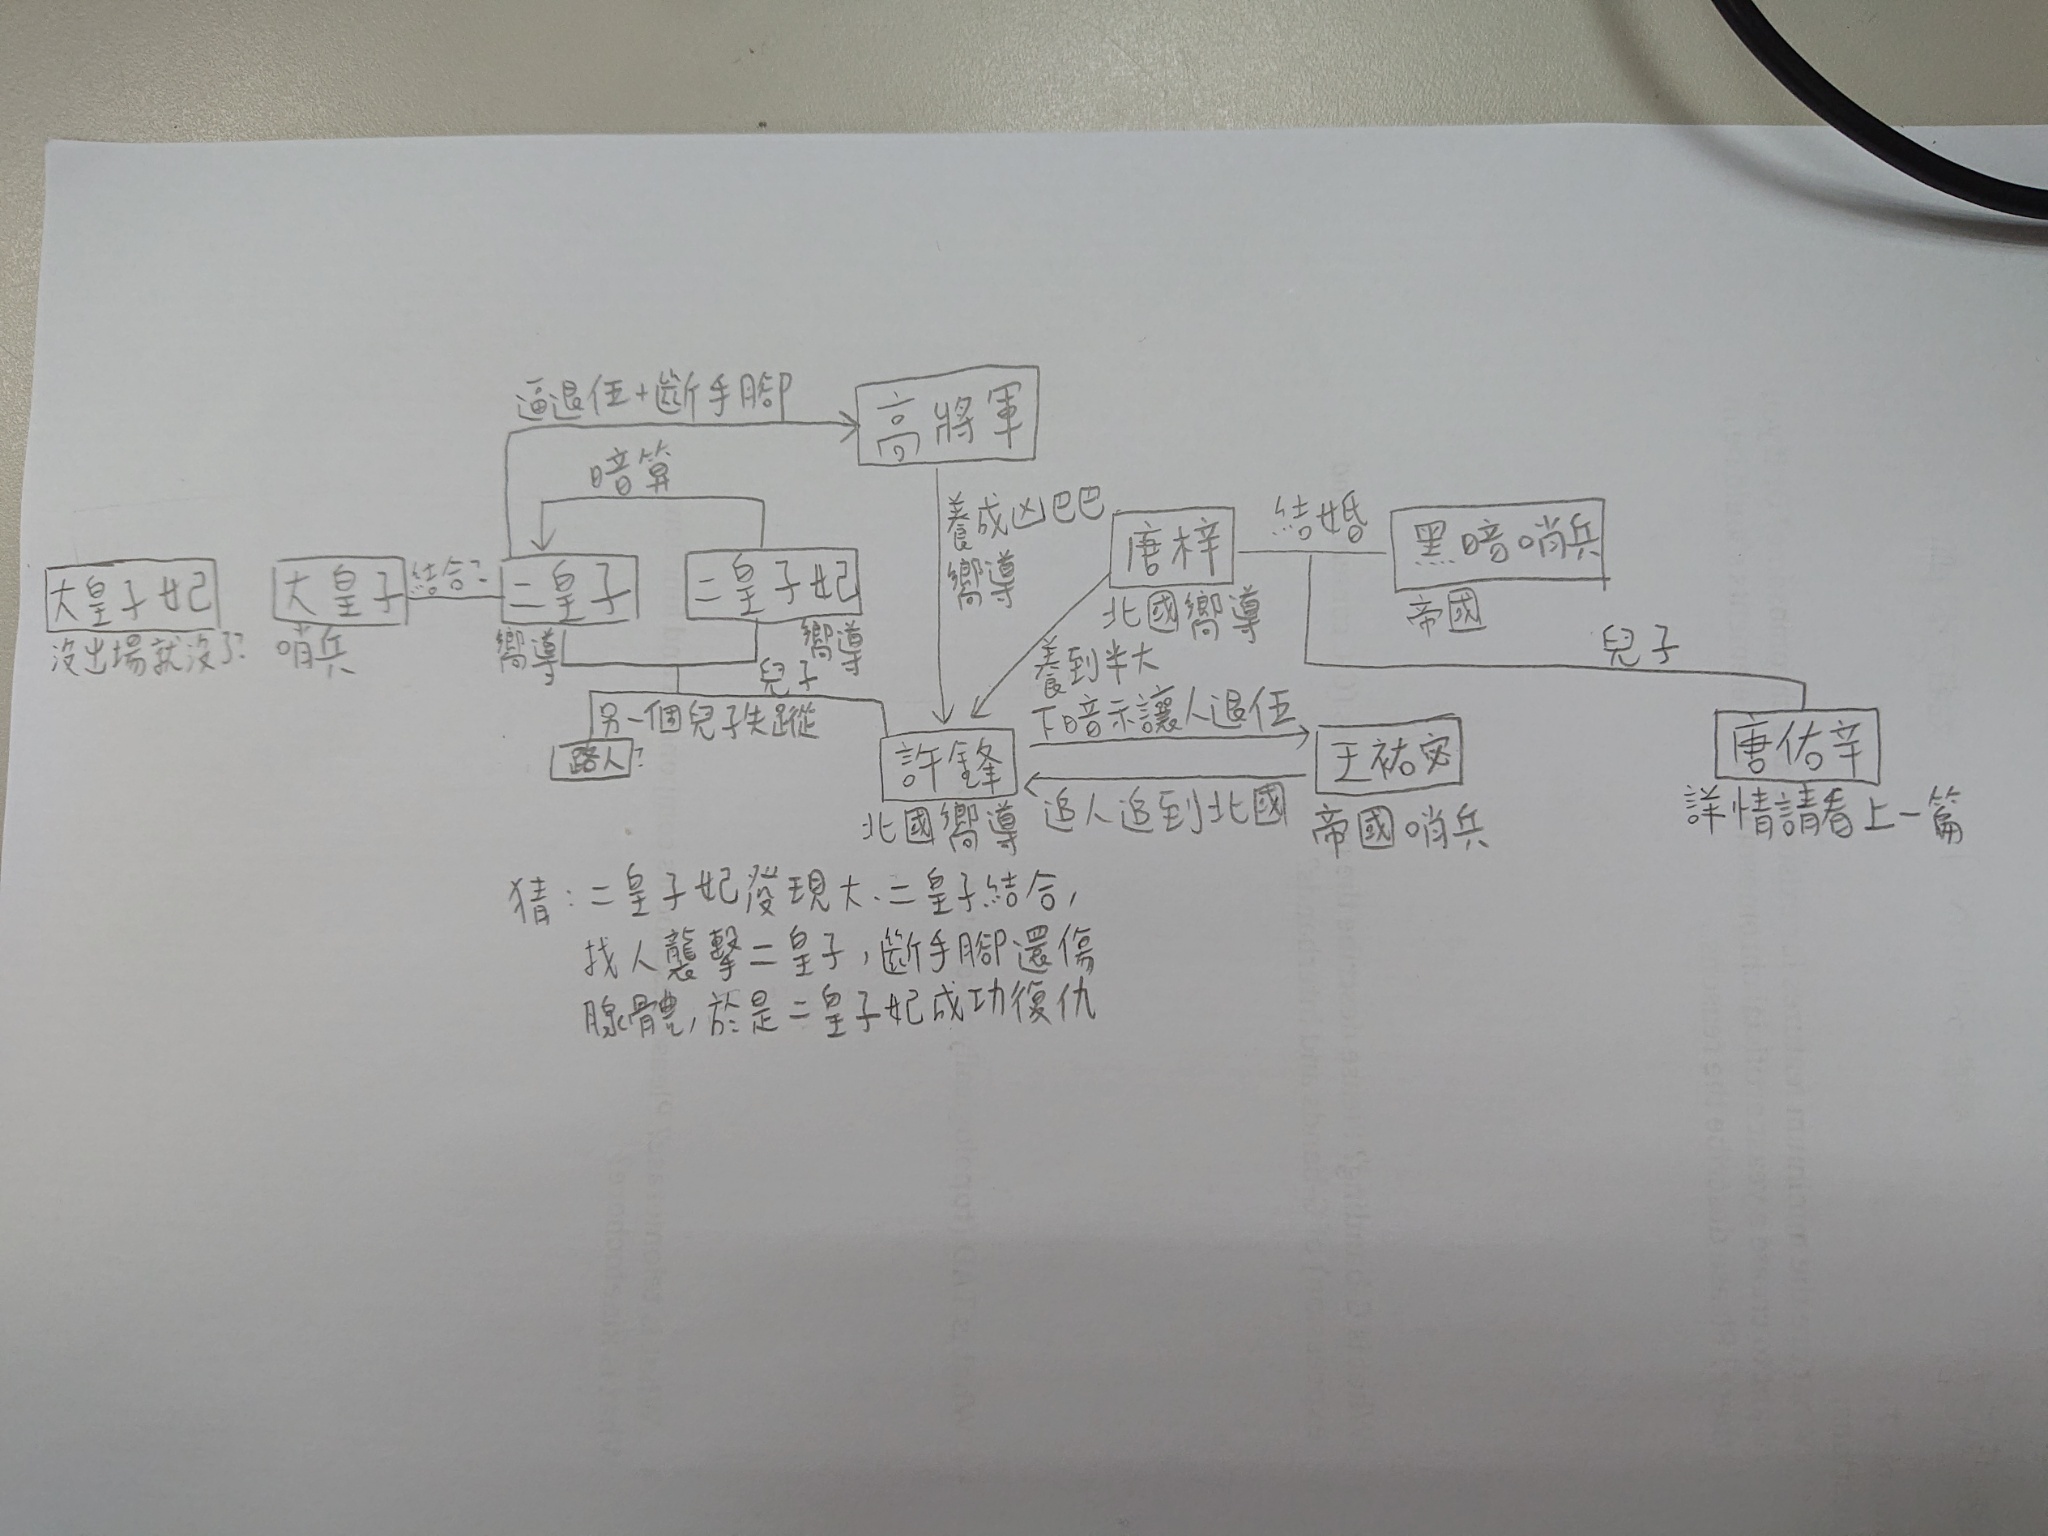 逼退伍+斷手腳
高將軍
暗算
養成凶巴巴
嚮導
唐梓
北國嚮導
結婚
黑暗哨兵
帝國
大皇子妃
沒出場就沒了?
大皇子
哨兵
結合?
二皇子
嚮導
二皇子妃
嚮導
兒子
另一個兒子失蹤
路人?
養到半大
下暗示讓人退伍
兒子
許鋒
北國嚮導
追人追到北國
王祐
帝國哨兵
唐佑辛
詳情請看上一篇
猜:二皇子妃發現大、二皇子結合,
找人襲擊二皇子,斷手腳還傷
腺體,於是二皇子妃成功復仇